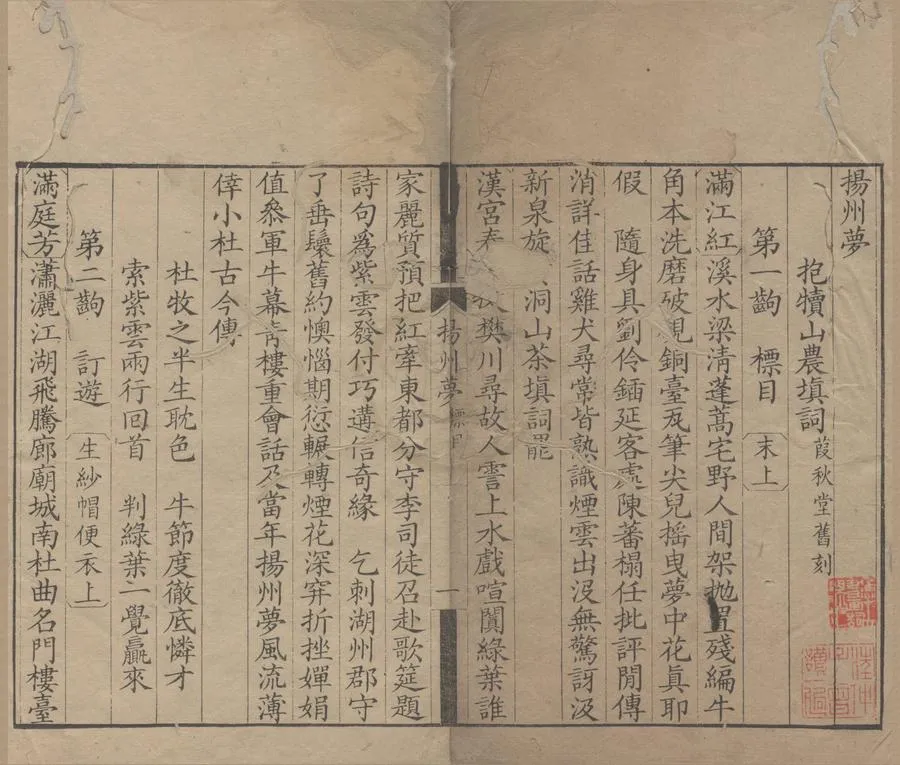 揚州夢
抱犢山農填詞 葭秋堂舊刻
第一齣 標目 末上
滿江紅溪水梁淸蓬蒿宅野人間架抛置殘編牛
角本洗磨破硯銅臺瓦筆尖兒搖曳夢中花眞耶
假 隨身具劉伶鍤延客處陳蕃榻任批評閒傳
消詳佳話雞犬尋常皆熟識煙雲出沒無驚訝汲
新泉旋 洞山茶填詞罷
漢宮春 樊川尋故人霅上水戲喧闐綠葉誰
揚州夢 標目 一
家麗質預把紅牽東都分守李司徒召赴歌筵題
詩句爲紫雲發付巧遘信奇緣 乞刺湖州郡守
了垂鬟舊約懊惱期愆輾轉煙花深穽折挫嬋娟
值叅軍牛幕靑樓重會話及當年揚州夢風流薄
倖小杜古今傳
杜牧之半生耽色 牛節度徹底憐才
索紫雲兩行回首 判綠葉一覺贏來
第二齣 訂遊 生紗帽便衣上
滿庭芳瀟灑江湖飛騰廊廟城南杜曲名門樓臺